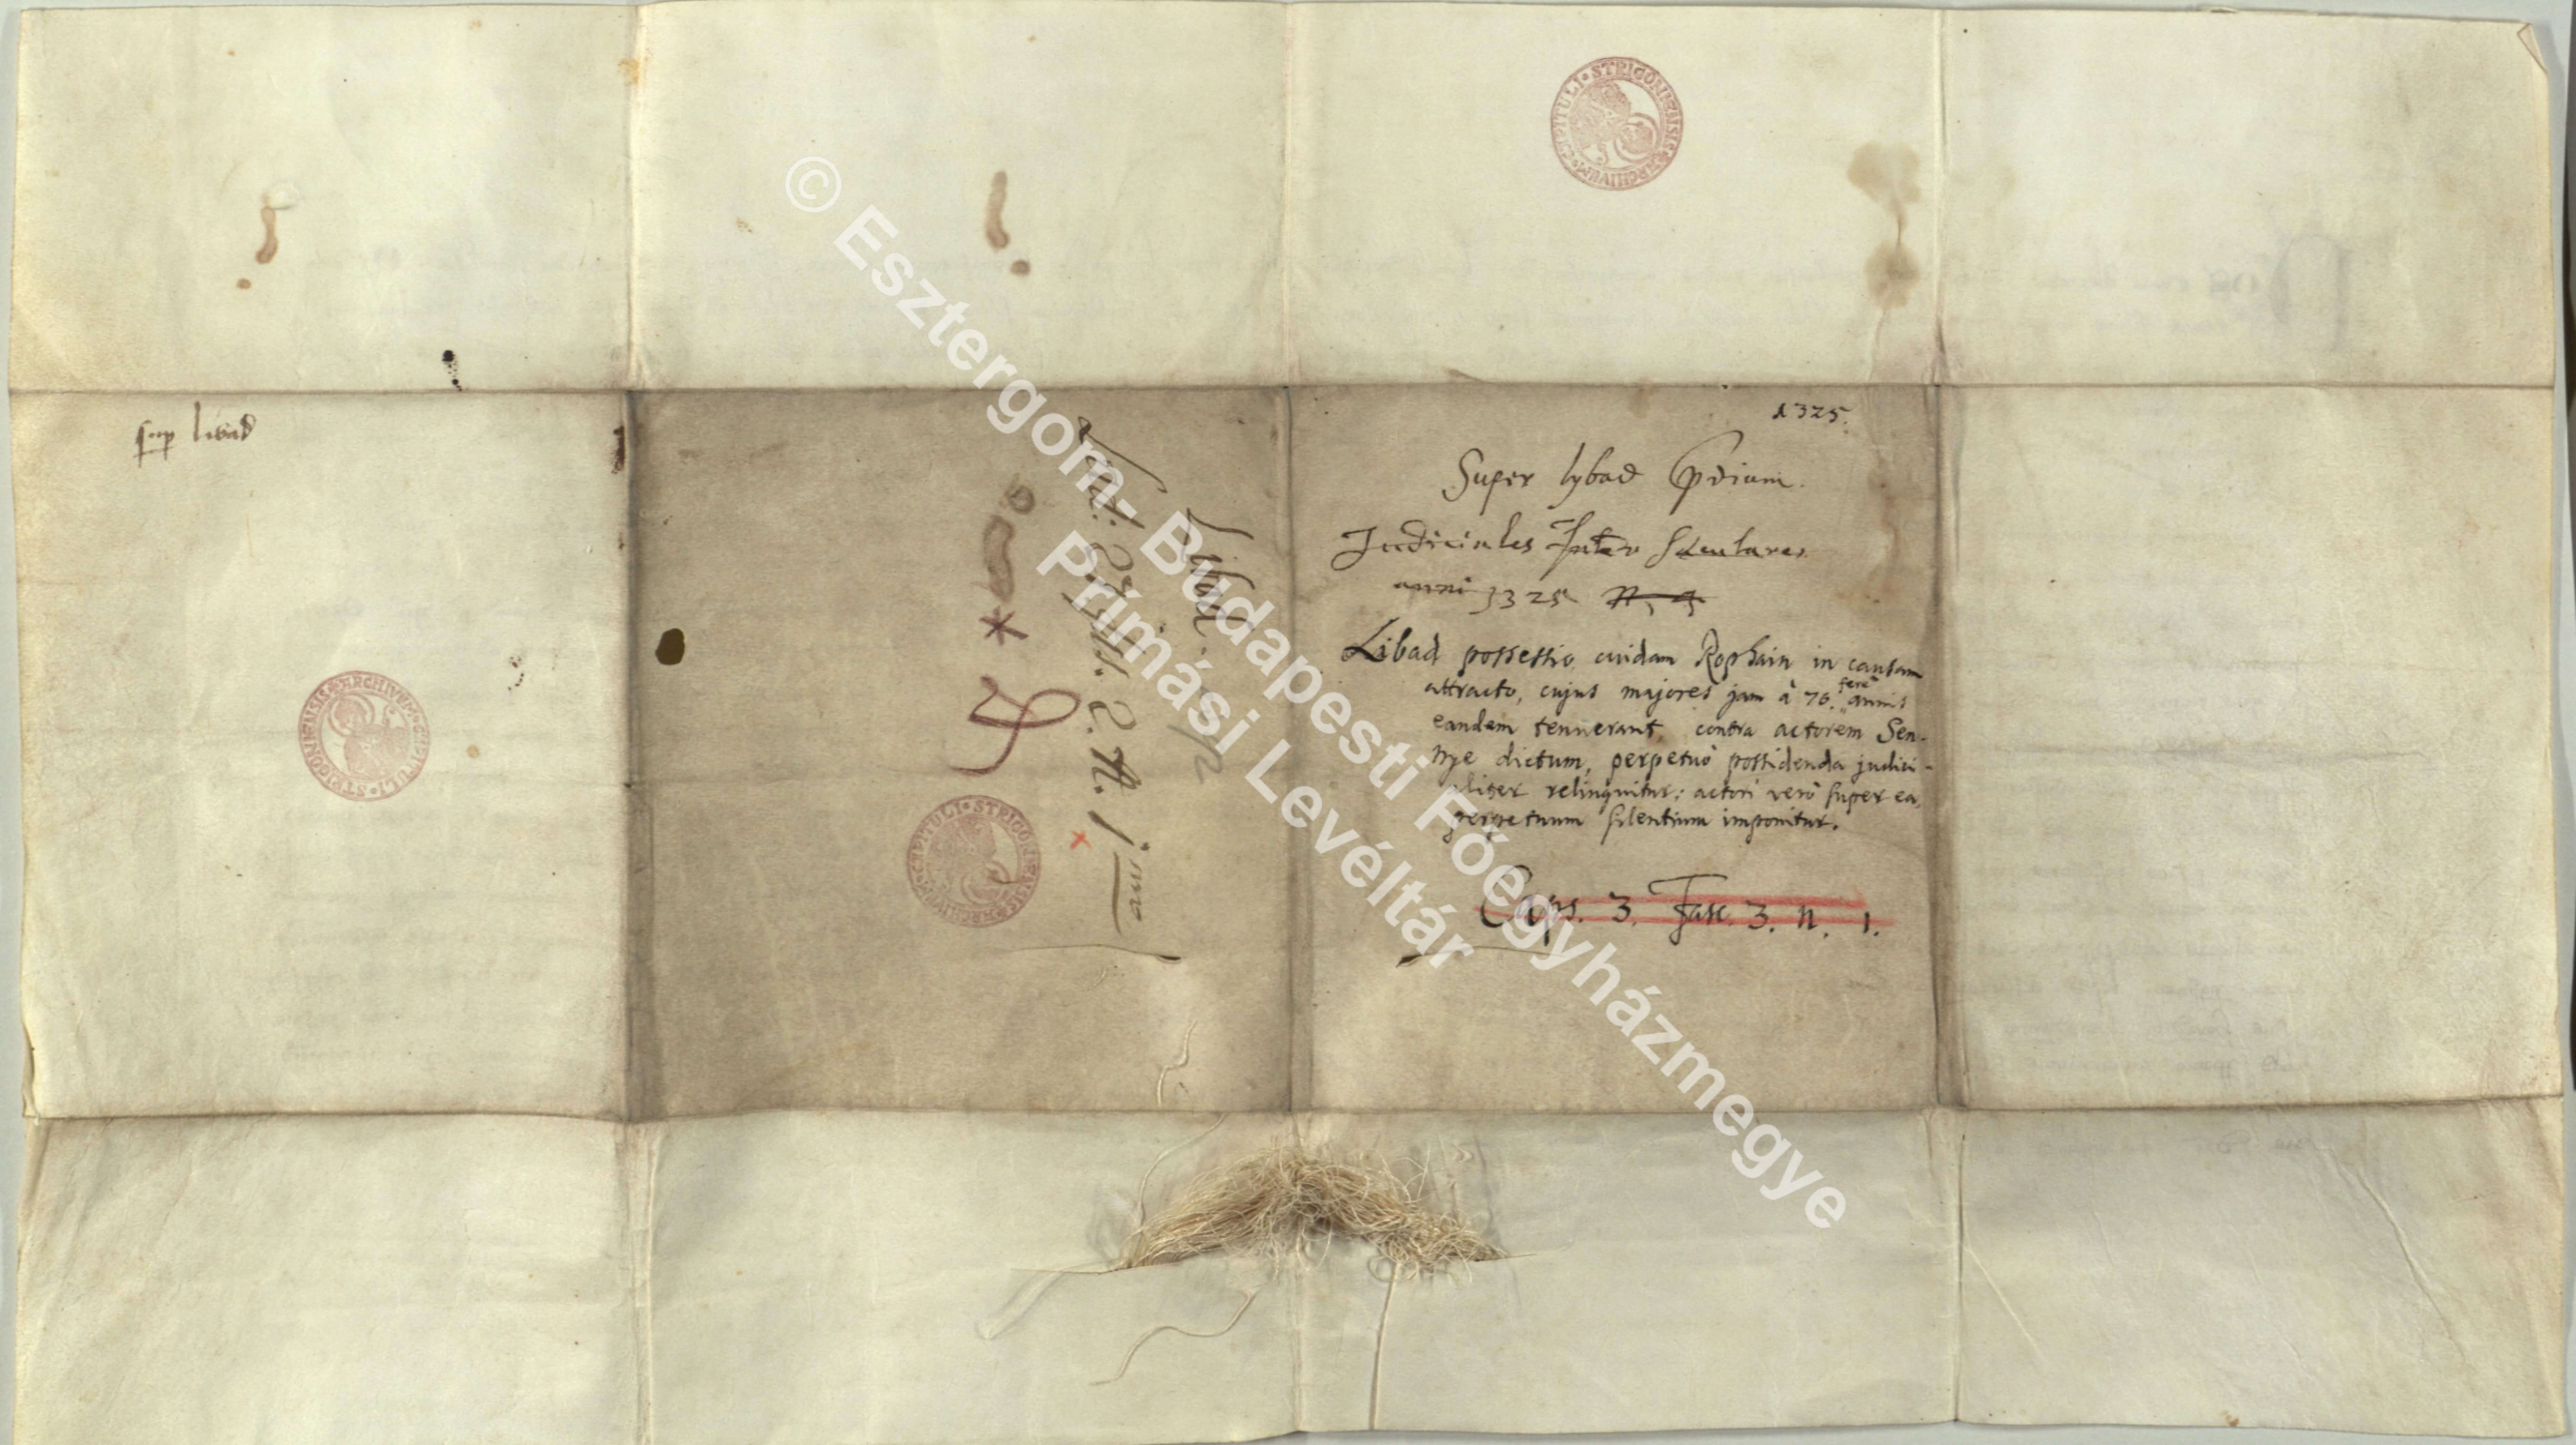 1325.
sup libad
Super lybad Prdium.
Judiciales Inter Seculares
anni 1325
Libad possessio cuidam Rophain in causam
attracto, cujus majores jam à 76. ferè annis
eandem tenuerant, contra actorem Sen-
nye dictum, perpetuò possidenda judici-
aliter relinquitur: actori verò super ea,
perpetuum silentium imponitur.
Caps. 3. Fasc. 3. N. 1.
Libad
2. N. 1mo
ARCHIVUM CAPITULI STRIGONIENSIS
ARCHIVUM CAPITULI STRIGONIENSIS
ARCHIVUM CAPITULI STRIGONIENSIS
© Esztergom- Budapesti Főegyházmegye
Prímási Levéltár